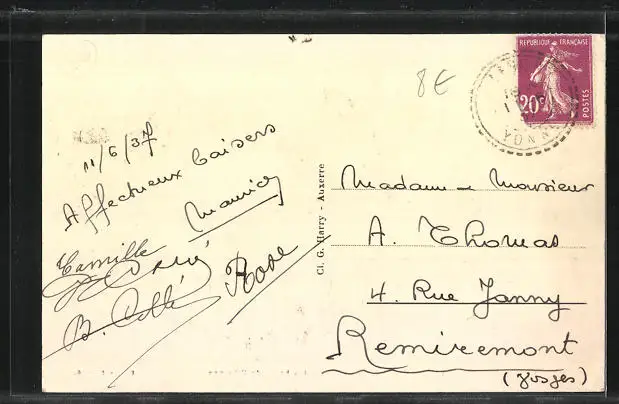 8€
REPUBLIQUE FRANÇAISE
20c
POSTES
YONNE
11/6/37
Affectueux baisers
Maurice
Camille
Rose
B. Collé
Cl. G. Harry - Auxerre
Madame - Monsieur
A. Thomas
4. Rue Janny
Remiremont
(Vosges)